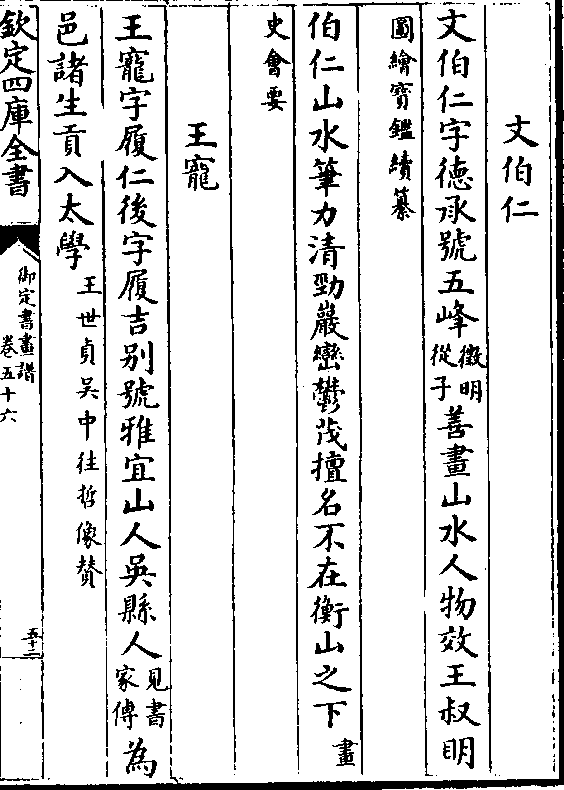 文伯仁
文伯仁字德承號五峰徵明從子善畫山水人物效王叔明
圖繪寶鑑續纂
伯仁山水筆力清勁巖巒鬱茂擅名不在衡山之下畫
史會要
王寵
王寵字履仁後字履吉别號雅宜山人吳縣人見書家傳為
邑諸生貢入太學王世貞吳中往哲像贊
欽定四庫全書
御定書畫譜
卷五十六
五十二